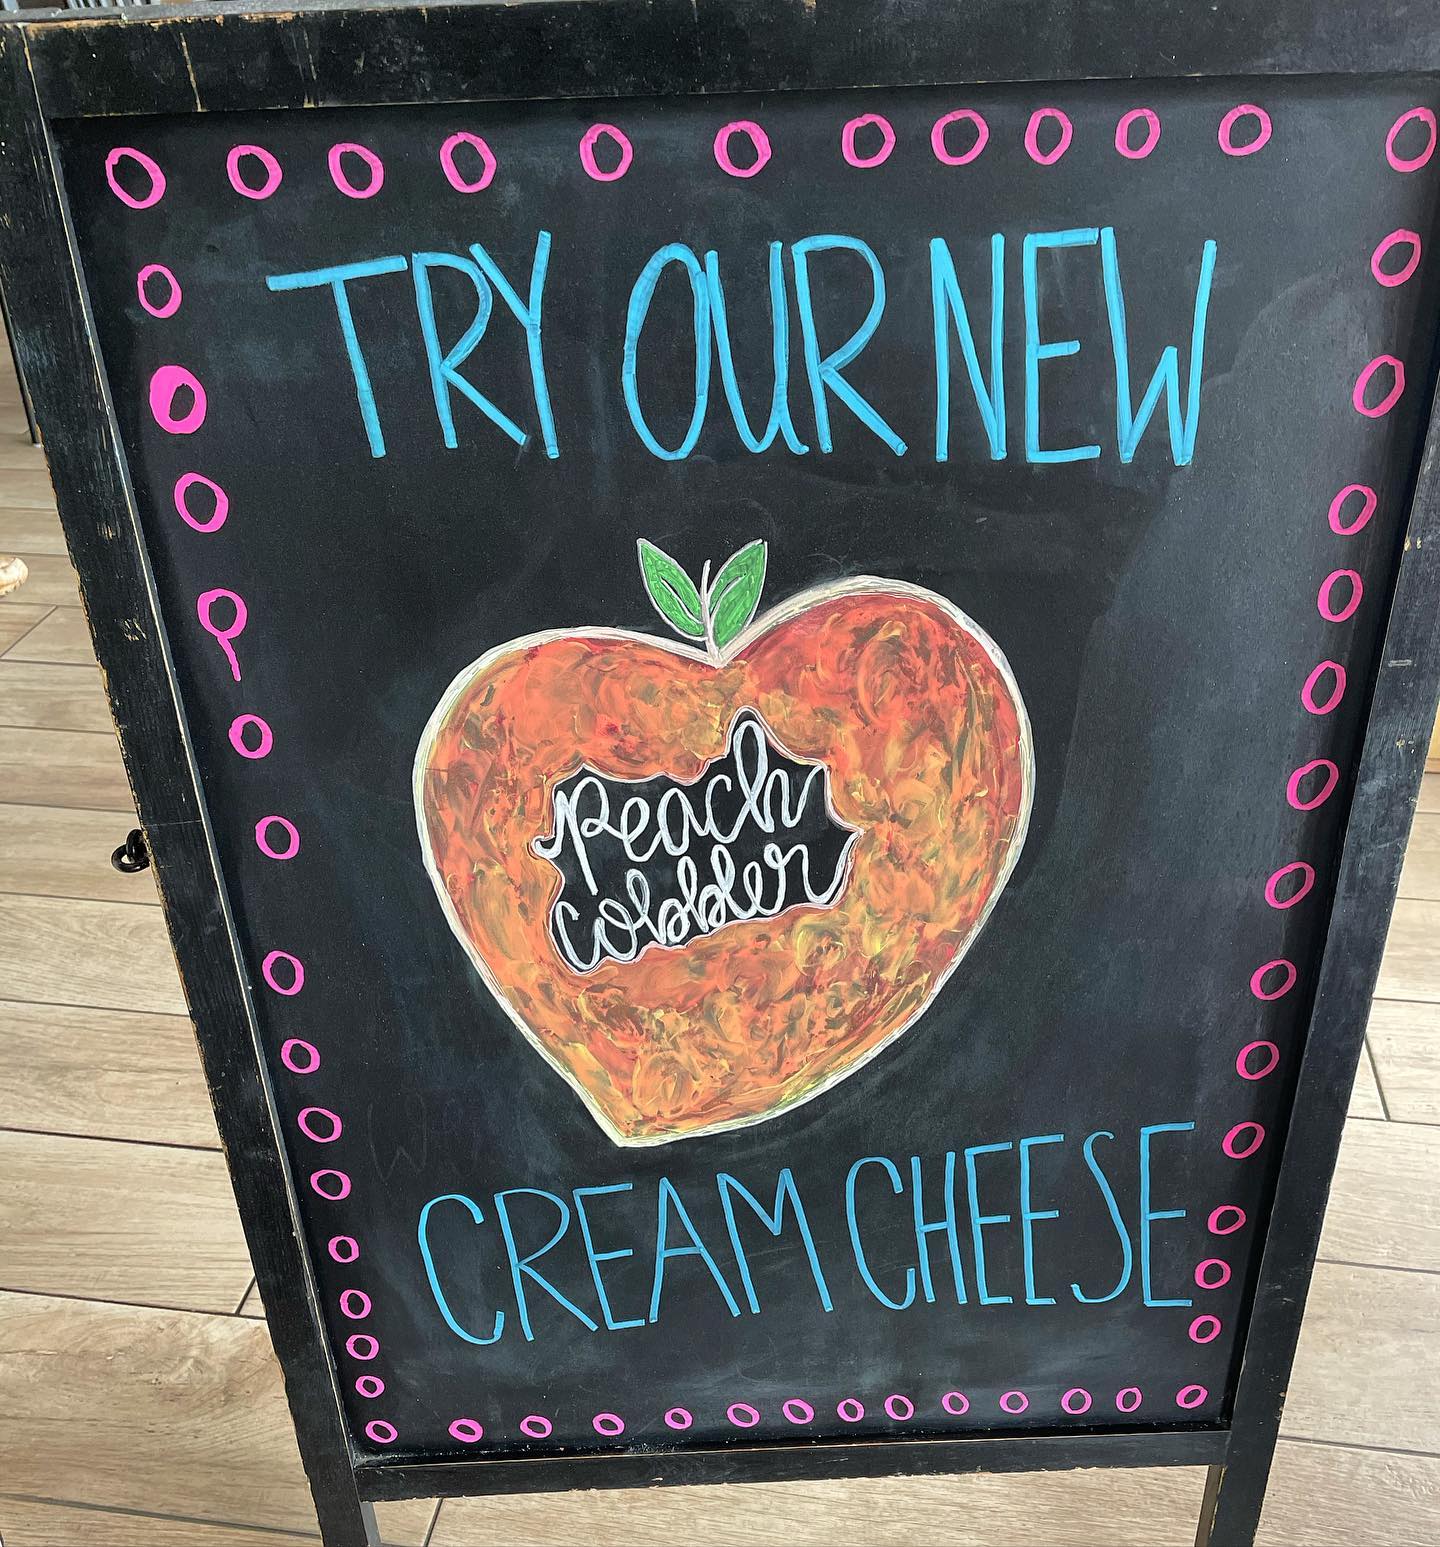 TRY OUR NEW
Peach
cobbler
CREAM CHEESE